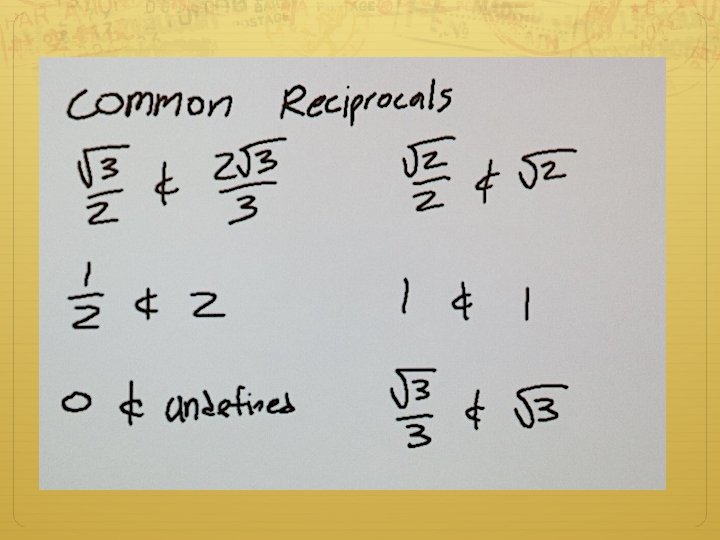 Common Reciprocals
√3/2 & 2√3/3 √2/2 & √2
1/2 & 2 1 & 1
0 & undefined √3/3 & √3